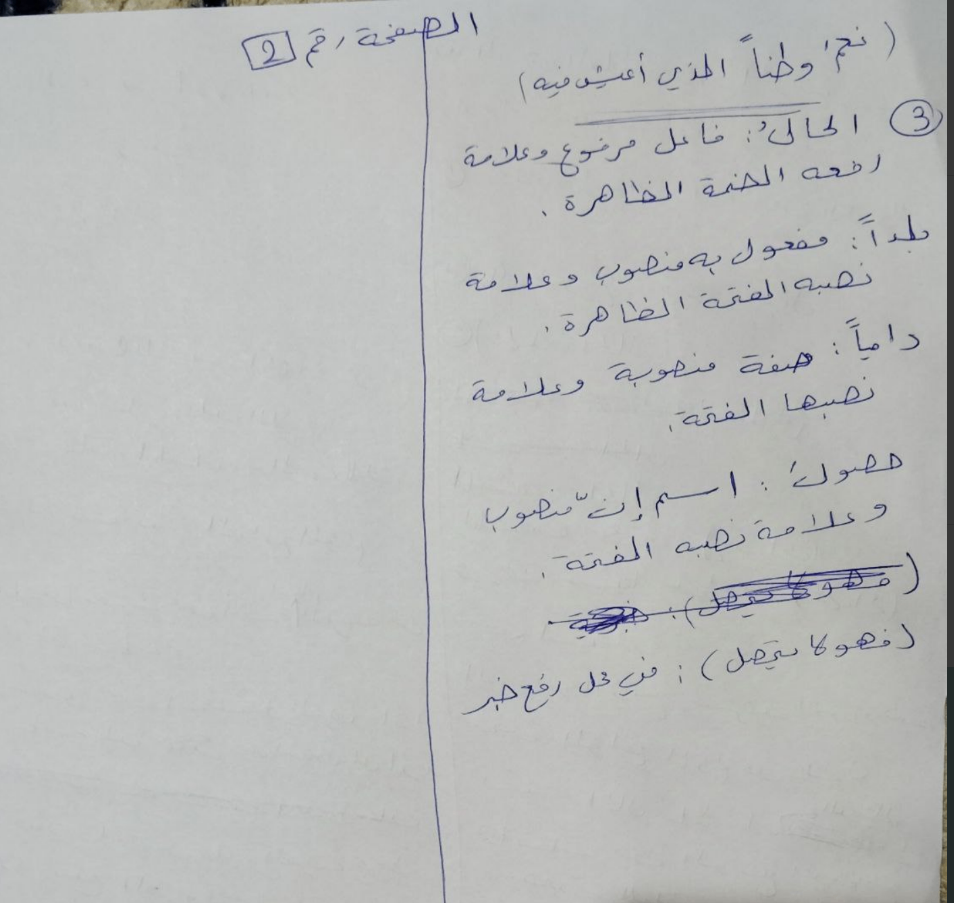 الصفحة رقم 2
( نعم وطناً الذي أعيش فيه )
3 الحالُ : فاعل مرفوع وعلامة
رفعه الضمة الظاهرة .
بلداً : مفعول به منصوب وعلامة
نصبه الفتحة الظاهرة .
دامياً : صفة منصوبة وعلامة
نصبها الفتحة .
حصولَ : اسم إنّ منصوب
وعلامة نصبه الفتحة .
( فهو لا يتحمل ) : في محل رفع خبر